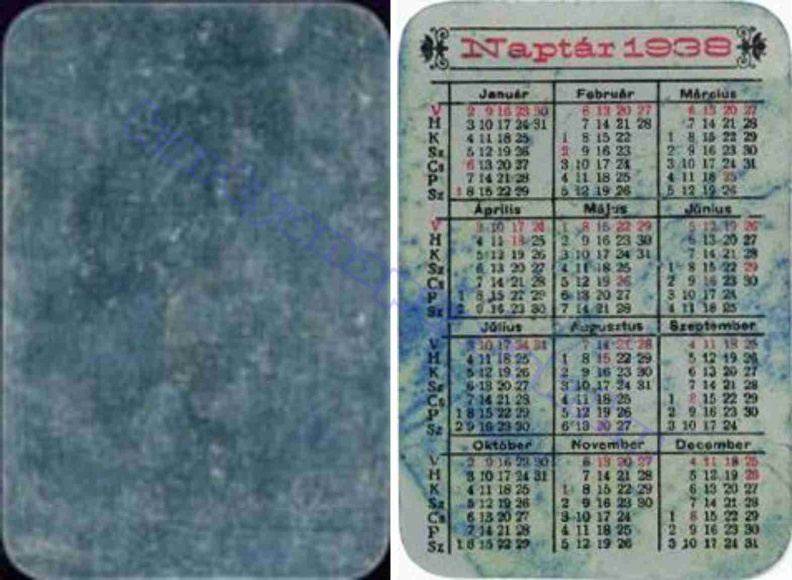 Naptár 1938
Január Február Március
V 2 9 16 23 30 6 13 20 27 6 13 20 27
H 3 10 17 24 31 7 14 21 28 7 14 21 28
K 4 11 18 25 1 8 15 22 1 8 15 22 29
Sz 5 12 19 26 2 9 16 23 2 9 16 23 30
Cs 6 13 20 27 3 10 17 24 3 10 17 24 31
P 7 14 21 28 4 11 18 25 4 11 18 25
Sz 1 8 15 22 29 5 12 19 26 5 12 19 26
Április Május Június
V 3 10 17 24 1 8 15 22 29 5 12 19 26
H 4 11 18 25 2 9 16 23 30 6 13 20 27
K 5 12 19 26 3 10 17 24 31 7 14 21 28
Sz 6 13 20 27 4 11 18 25 1 8 15 22 29
Cs 7 14 21 28 5 12 19 26 2 9 16 23 30
P 1 8 15 22 29 6 13 20 27 3 10 17 24
Sz 2 9 16 23 30 7 14 21 28 4 11 18 25
Július Augusztus Szeptember
V 3 10 17 24 31 7 14 21 28 4 11 18 25
H 4 11 18 25 1 8 15 22 29 5 12 19 26
K 5 12 19 26 2 9 16 23 30 6 13 20 27
Sz 6 13 20 27 3 10 17 24 31 7 14 21 28
Cs 7 14 21 28 4 11 18 25 1 8 15 22 29
P 1 8 15 22 29 5 12 19 26 2 9 16 23 30
Sz 2 9 16 23 30 6 13 20 27 3 10 17 24
Október November December
V 2 9 16 23 30 6 13 20 27 4 11 18 25
H 3 10 17 24 31 7 14 21 28 5 12 19 26
K 4 11 18 25 1 8 15 22 29 6 13 20 27
Sz 5 12 19 26 2 9 16 23 30 7 14 21 28
Cs 6 13 20 27 3 10 17 24 1 8 15 22 29
P 7 14 21 28 4 11 18 25 2 9 16 23 30
Sz 1 8 15 22 29 5 12 19 26 3 10 17 24 31